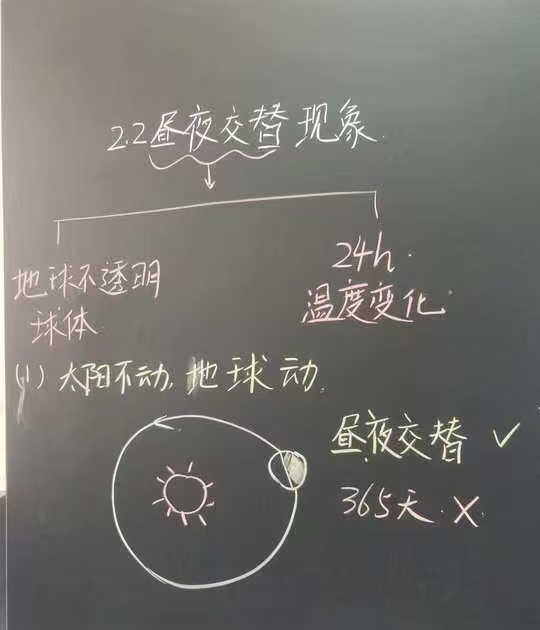 2.2昼夜交替现象.
24h.
地球不透明
温度变化.
球体.
(1) 太阳不动,地球动.
昼夜交替 ✓
365天. ×.